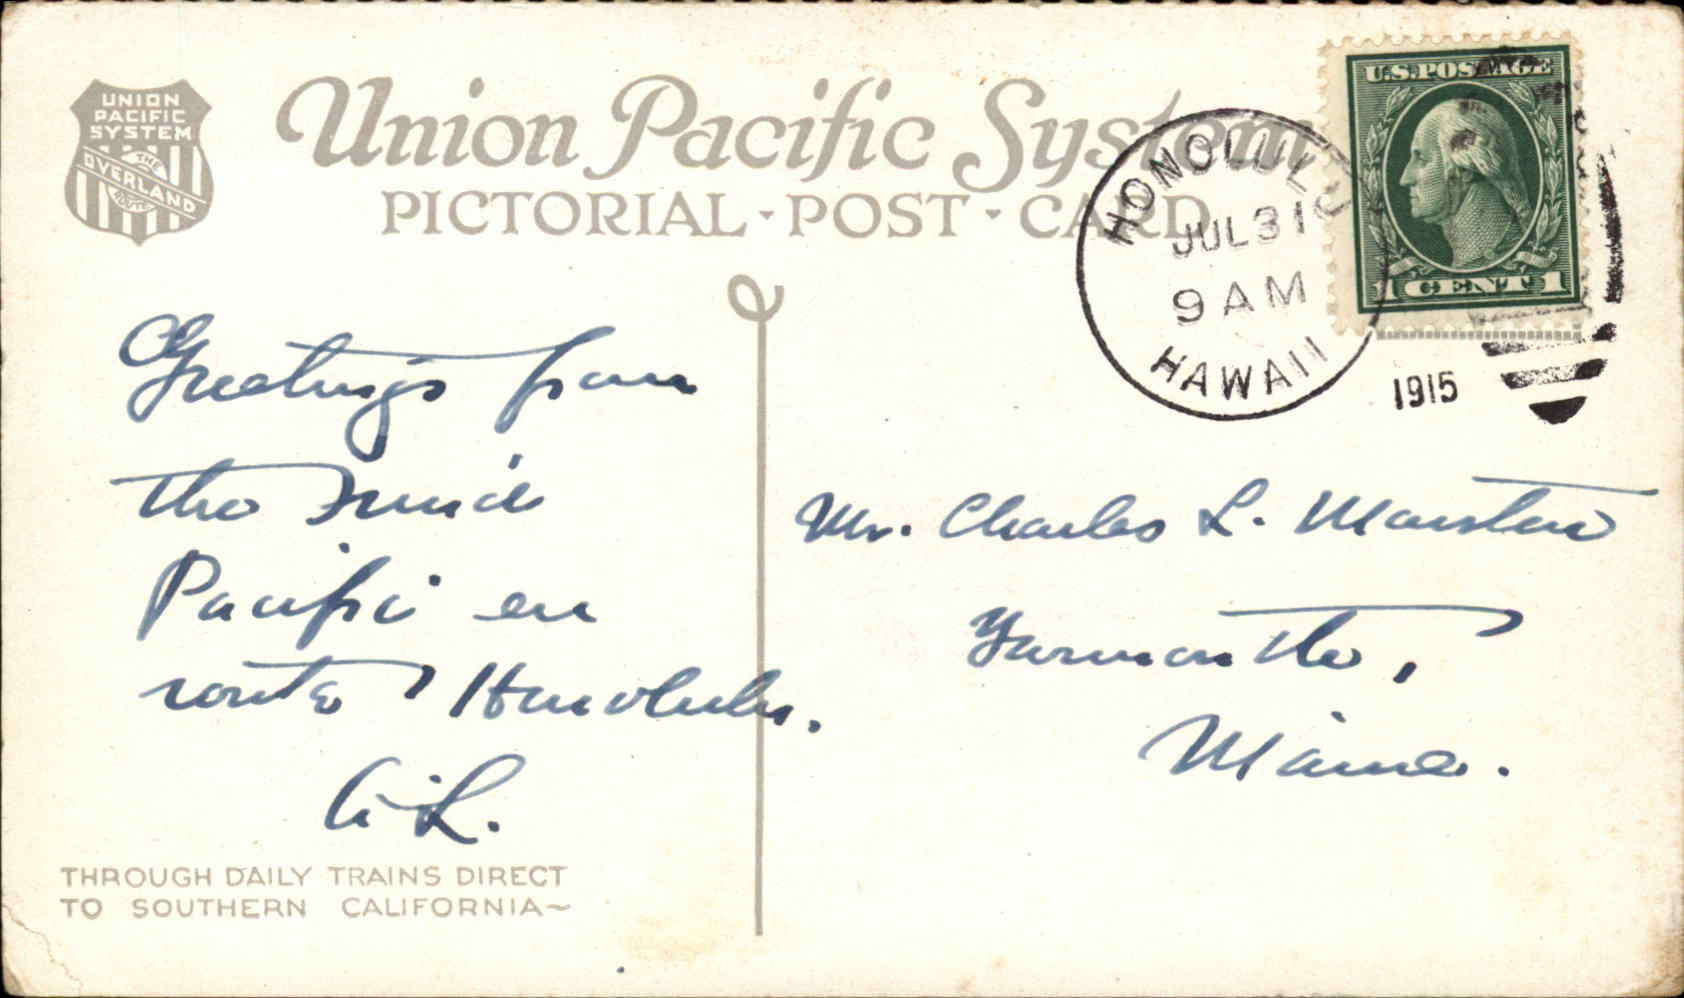 UNION
PACIFIC
SYSTEM
THE
OVERLAND
ROUTE
Union Pacific System
PICTORIAL - POST - CARD
U.S. POSTAGE
1 CENT 1
HONOLULU
JUL 31
9 AM
HAWAII
1915
Greetings from
the mid
Pacific en
route Honolulu.
A.L.
Mr. Charles L. Marston
Yarmouth,
Maine.
THROUGH DAILY TRAINS DIRECT
TO SOUTHERN CALIFORNIA~